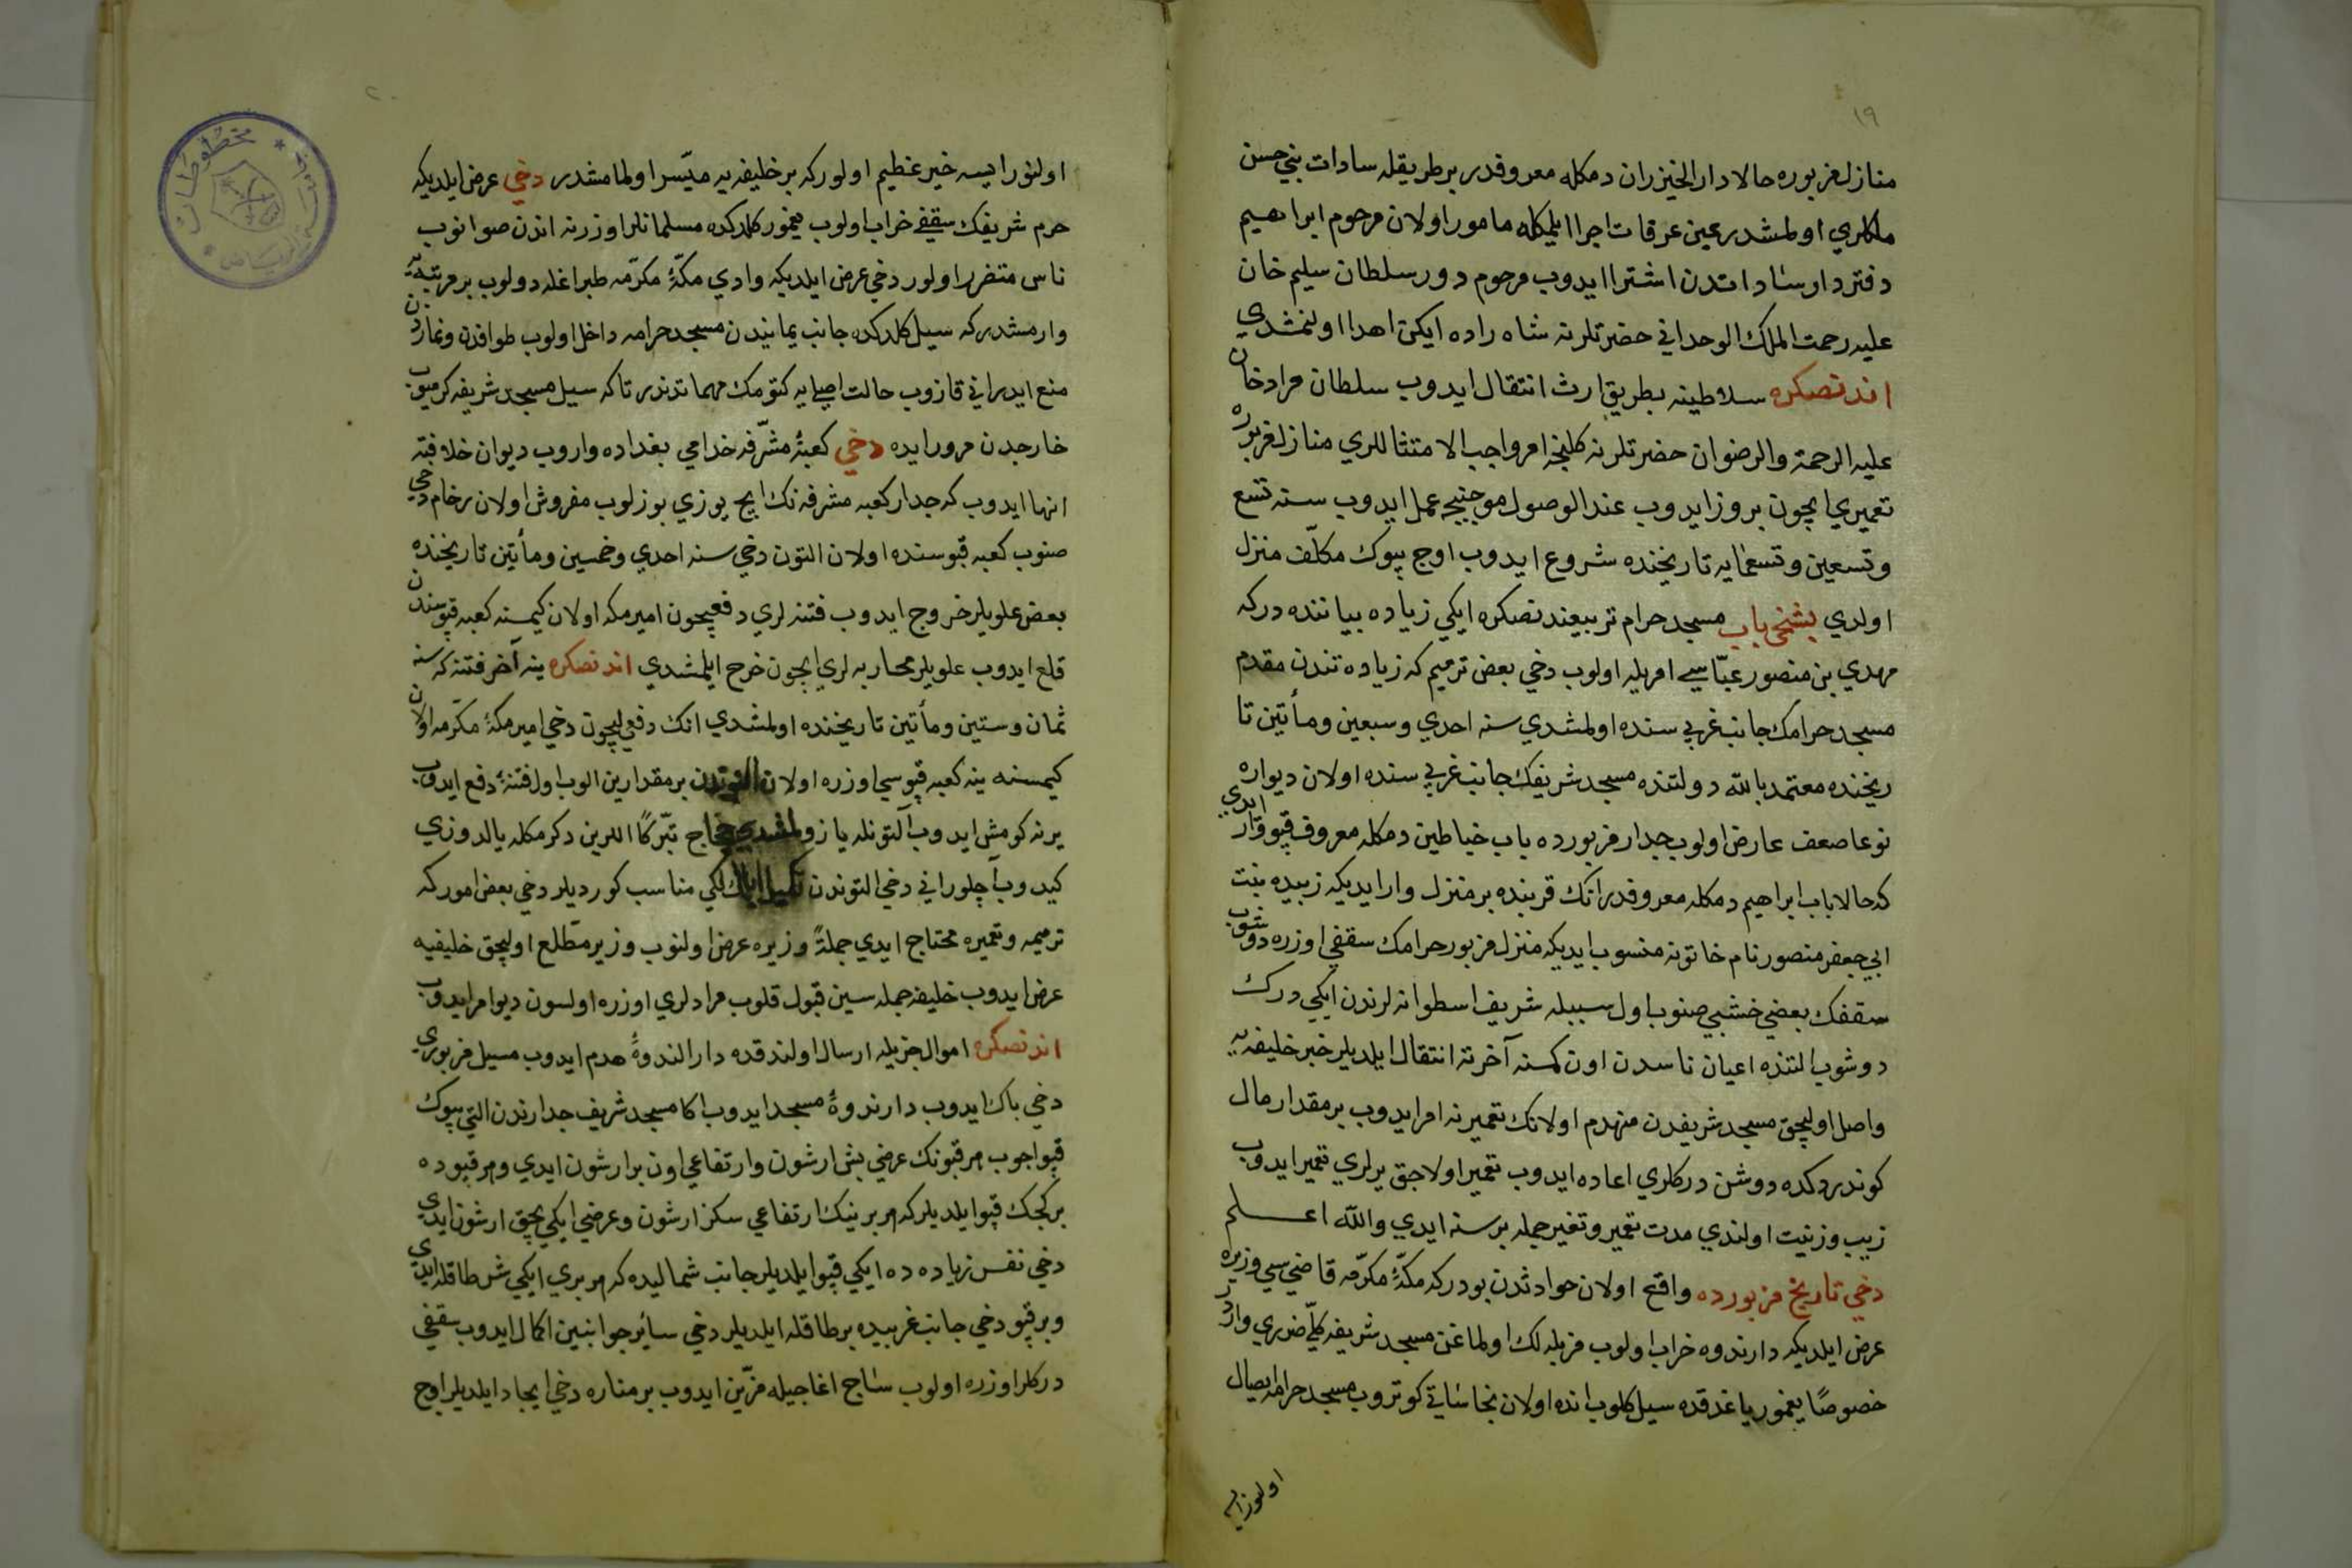 ١٩
منازل مزبوره حالا دار الخيزران دمكله معروفدر بر طريقله سادات بني حسن
ملكلري اولمشدر عين عرفات اجرا ايلمكله مامور اولان مرحوم ابراهيم
دفتردار ساداتدن اشترا ايدوب مرحوم دور سلطان سليم خان
عليه رحمت الملك الوحداني حضرتلرنه شاه راده ايكن اهدا اولنمشدي
اندنصكره سلاطينه بطريق ارث انتقال ايدوب سلطان مراد خان
عليه الرحمة والرضوان حضرتلرنه كلنجه امر واجب الامتثاللري منازل مزبوره
تعميري ايچون بروز ايدوب عند الوصول موجبيجه عمل ايدوب سنه تسع
وتسعين وتسعمايه تاريخنده شروع ايدوب اوج بيوك مكلّف منزل
اولدي بشنجي باب مسجد حرام تربيعندنصكره ايكي زياده بياننده دركه
مهدي بن منصور عبّاسي امريله اولوب دخي بعض ترميم كه زياده تندن مقدم
مسجد حرامك جانب غربي سنده اولمشدي سنه احدي وسبعين ومأتين تا
ريخنده معتمد بالله دولتنده مسجد شريفك جانب غربي سنده اولان ديواره
نوعا ضعف عارض اولوب جدار مزبورده باب خياطين دمكله معروف قپو وار ايدي
كه حالا باب ابراهيم دمكله معروفدر انك قربنده بر منزل وار ايديكه زبيده بنت
ابي جعفر منصور نام خاتونه منسوب ايديكه منزل مزبور حرامك سقفي اوزره دوشوب
سقفك بعضي خشبي صنوب اول سببله شريف اسطوانه لرندن ايكي درك
دوشوب التنده اعيان ناسدن اون كمسنه آخرته انتقال ايلديلر خبر خليفه يه
واصل اوليجق مسجد شريفدن منهدم اولانك تعميرنه امر ايدوب بر مقدار مال
كوندردكده دوشن دركلري اعاده ايدوب تعمير اولاجق يرلري تعمير ايدوب
زيب وزينت اولندي مدت تعمير وتغير جمله بر سنه ايدي والله اعلم
دخي تاريخ مزبورده واقع اولان حوادثدن بودركه مكّهٔ مكرّمه قاضي سي وزيره
عرض ايلديكه دارندوه خراب اولوب مزبله لك اولماغن مسجد شريفه كلّي ضرري واردر
خصوصًا يغمور ياغدقده سيل كلوب انده اولان نجاساتي كوتروب مسجد حرامه ايصال
اولنور ايسه
٢٠
اولنور ايسه خير عظيم اولوركه بر خليفه يه ميّسر اولمامشدر دخي عرض ايلديكه
حرم شريفك سقفي خراب اولوب يغمور كلدكده مسلمانلر اوزرنه اندن صو انوب
ناس متضرر اولور دخي عرض ايلديكه وادي مكّهٔ مكرّمه طبراغله دولوب بر مرتبه يه
وارمشدركه سيل كلدكده جانب يمانيدن مسجد حرامه داخل اولوب طوافدن ونمازدن
منع ايدر اني قازوب حالت اصليه يه كتورمك مهماتدندر تاكه سيل مسجد شريفه كرميوب
خارجدن مرور ايده دخي كعبهٔ مشّرفه خدامي بغداده واروب ديوان خلافته
انها ايدوب كه جدار كعبه مشرفه نك ايچ يوزي بوزلوب مفروش اولان رخام دخي
صنوب كعبه قپوسنده اولان التون دخي سنه احدي وخمسين ومأتين تاريخنده
بعض علويلر خروج ايدوب فتنه لري دفعيچون امير مكه اولان كيمسنه كعبه قپوسندن
قلع ايدوب علويلر محاربه لري ايچون خرج ايلمشدي اندنصكره ينه آخر فتنه كه سنه
ثمان وستين ومأتين تاريخنده اولمشدي انك دفعيچون دخي امير مكهٔ مكرّمه اولان
كيمسنه ينه كعبه قپوسي اوزره اولان التوندن بر مقدارين الوب اول فتنهٔ دفع ايدوب
يرنه كومش ايدوب آلتونله يازولمشدي حجاج تبّركًا اللرين دكرمكله يالدوزي
كيدوب آچلور اني دخي التوندن تكميل ايلمك لكي مناسب كورديلر دخي بعض امور كه
ترميمه وتعميره محتاج ايدي جملةً وزيره عرض اولنوب وزير مطّلع اوليجق خليفيه
عرض ايدوب خليفه جمله سين قبول قلوب مرادلري اوزره اولسون ديو امر ايدوب
اندنصكره اموال جزيله ارسال اولندقده دار الندوهٔ هدم ايدوب مسيل مزبوري
دخي پاك ايدوب دارندوهٔ مسجد ايدوب اكا مسجد شريف جدارندن التي بيوك
قپو اچوب هر قپونك عرضي بش ارشون وارتفاعي اون بر ارشون ايدي وهر قپوده
بر كچك قپو ايلديلر كه هر برينك ارتفاعي سكز ارشون وعرضي ايكي بچق ارشون ايدي
دخي نفس زياده ده ايكي قپو ايلديلر جانب شماليده كه هر بري ايكي شر طاقله ايدي
وبر قپو دخي جانب غربيده بر طاقله ايلديلر دخي سائر جوانبين اكمال ايدوب سقفي
دركلر اوزره اولوب ساج اغاجيله مزّين ايدوب بر مناره دخي ايجاد ايلديلر اوج
مخطوطات